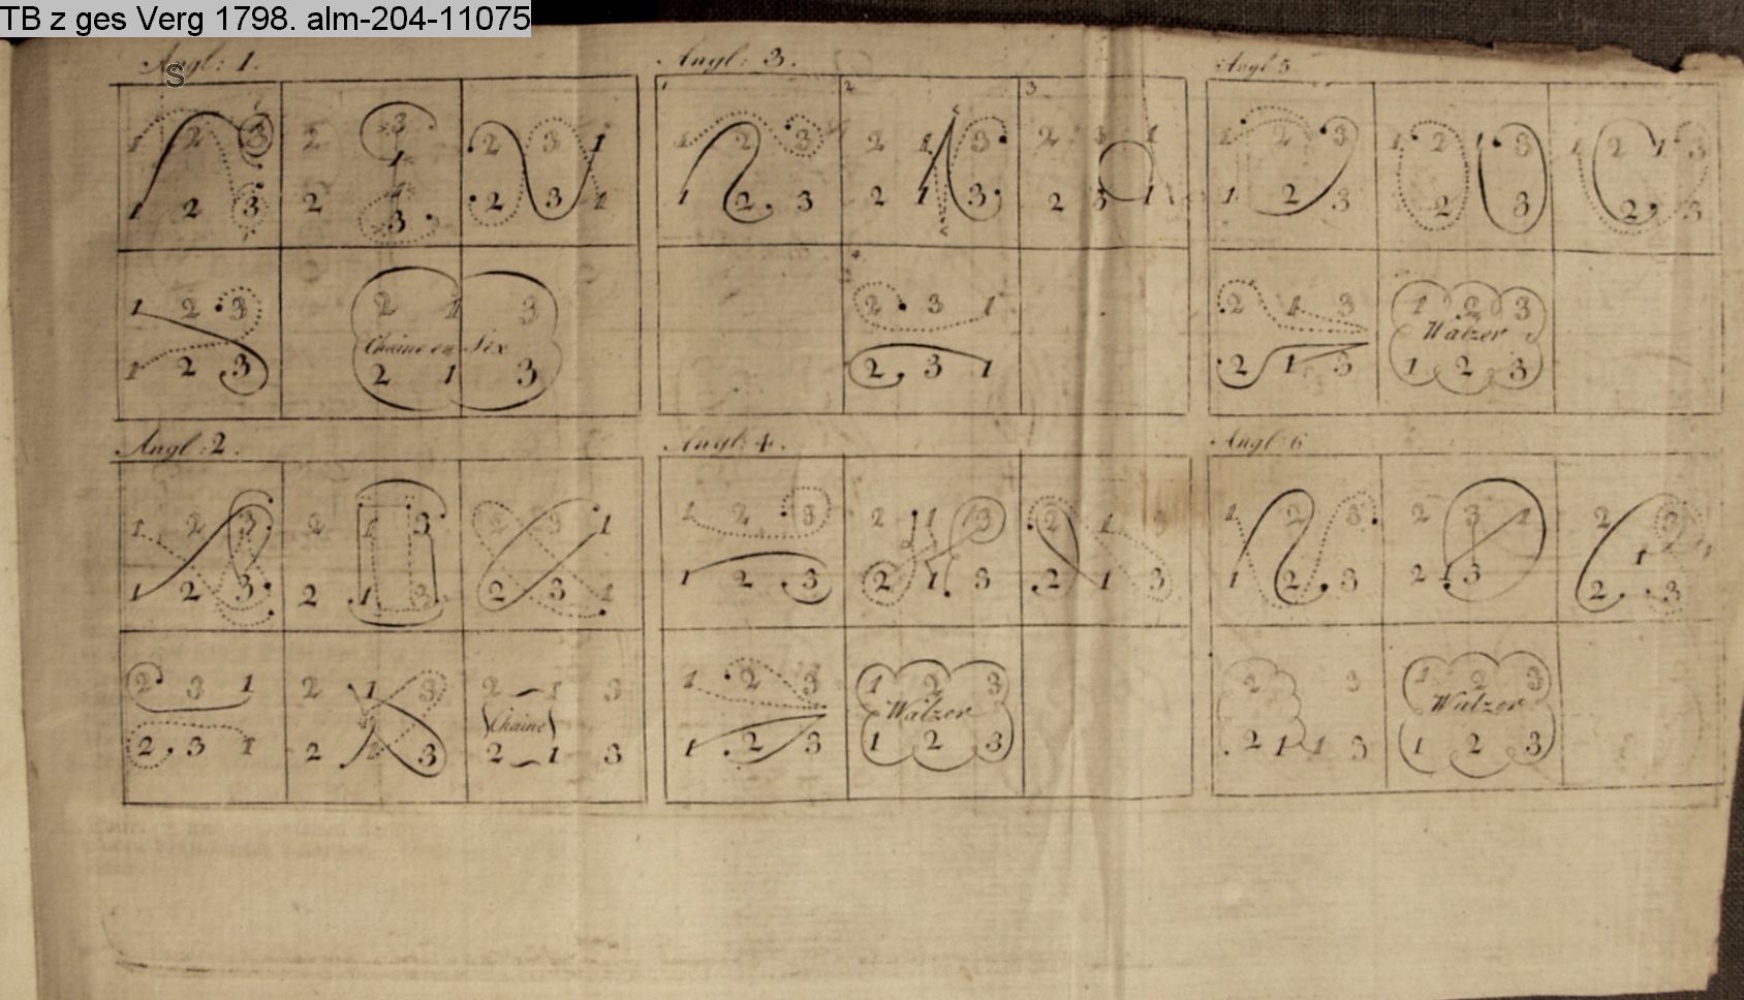 TB z ges Verg 1798. alm-204-11075
S
Angl: 1.
1 2 3
1 2 3
2 3 1
2 1 3
2 3 1
2 3 1
1 2 3
1 2 3
2 1 3
Chaine en Six
2 1 3
Angl: 3.
1 2 3
1 2 3
2
2 1 3
2 1 3
3
2 3 1
2 3 1
2 3 1
2 3 1
Angl 5
1 2 3
1 2 3
1 2 1 3
2 3
1 2 1 3
2 3
2 1 3
2 1 3
1 2 3
Walzer
1 2 3
Angl: 2.
1 2 3
1 2 3
2 1 3
2 1 3
2 3 1
2 3 1
2 3 1
2 3 1
2 1 3
2 1 3
2 1 3
Chaine
2 1 3
Angl: 4.
1 2 3
1 2 3
2 1 3
2 1 3
2 1 3
2 1 3
1 2 3
1 2 3
1 2 3
Walzer
1 2 3
Angl: 6
1 2 3
1 2 3
2 3 1
2 3
2 3
1
2 3
2 3
2 1 1 3
1 2 3
Walzer
1 2 3